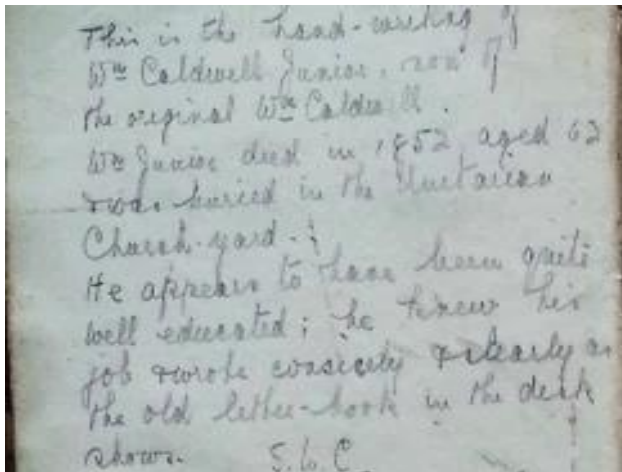 This is the hand-writing of
Wm Caldwell Junior, son of
the original Wm Caldwell.
Wm Junior died in 1852 aged 62
& was buried in the Unitarian
Church-yard.
He appears to have been quite
well educated; he knew his
job & wrote consicely & clearly as
the old letter-book in the desk
shows. S.W.C.